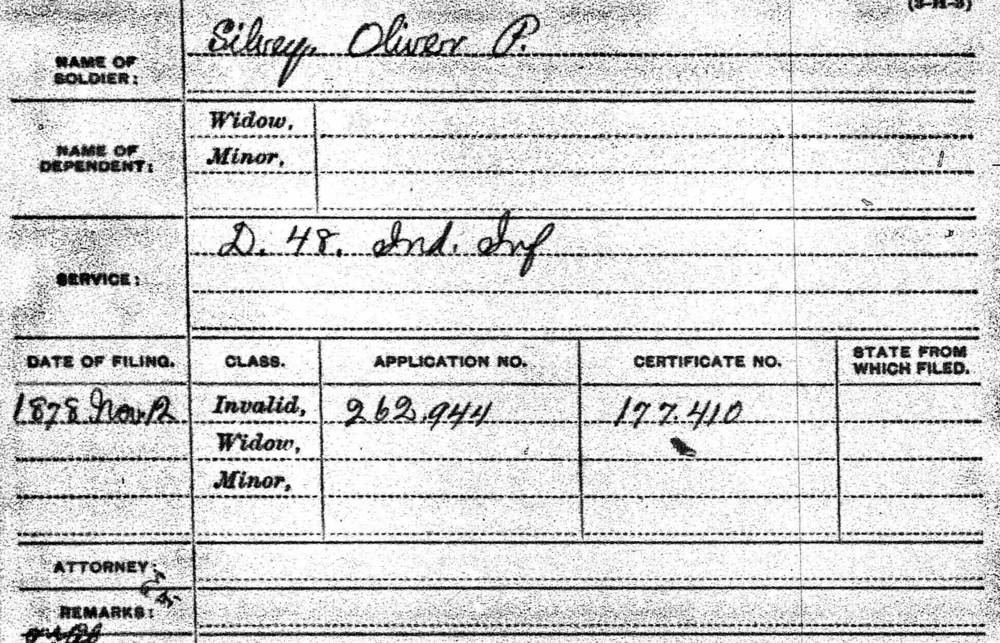 (3-H-3)
NAME OF SOLDIER:
Silvey, Oliver P.
NAME OF DEPENDENT:
Widow,
Minor,
SERVICE:
D. 48. Ind. Inf
DATE OF FILING. CLASS. APPLICATION NO. CERTIFICATE NO. STATE FROM WHICH FILED.
1878 Nov. 12 Invalid, 262.944 177.410
Widow,
Minor,
ATTORNEY:
REMARKS: